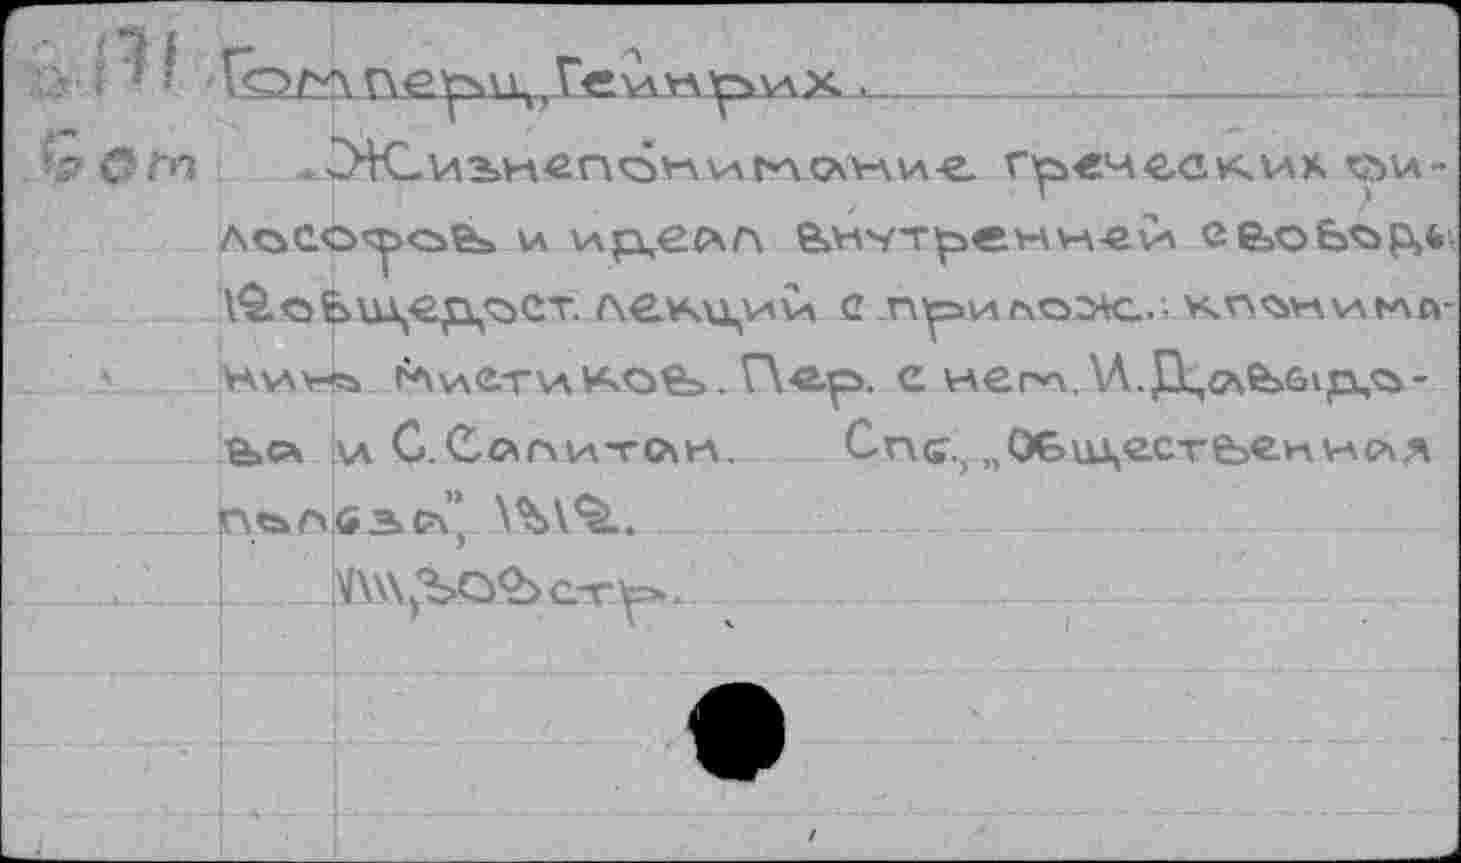 Гомперц, Генрих.
Жизнепонимание греческих фи-
лософов и идеал внутренней свободы
12 общедост. лекций с прилож.: к понима-
нию мистиков. Пер. с нем. И. Давыдо-
ва и С. Салитан. Спб., „Общественная
польза", 1912.
VIII, 303 стр.